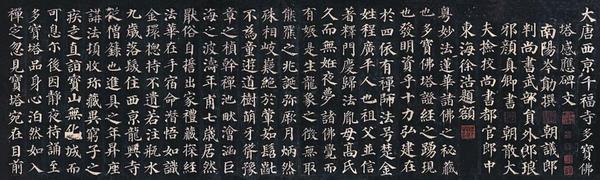 大唐西京千福寺多寶佛
塔感應碑文
南陽岑勛撰 朝議郎
判尚書武部員外郎琅
邪顏真卿書 朝散大
夫檢校尚書都官郎中
東海徐浩題額
粵妙法蓮華諸佛之秘藏
也多寶佛塔證經之踴現
也發明資乎十力弘建在
於四依有禪師法号楚金
姓程廣平人也祖父並信
著釋門慶歸法胤母高氏
久而無妊夜夢諸佛覺而
有娠是生龍象之徵無取
熊羆之兆誕弥厥月炳然
殊相岐嶷絕於葷茹髫齔
不為童遊道樹萌牙聳豫
章之楨幹禪池畎澮涵巨
海之波濤年甫七歲居然
猒俗自誓出家禮藏探經
法華在手宿命潛悟如識
金環揔持不遺若注瓶水
九歲落髮住西京龍興寺
從僧籙也進具之年昇座
講法頓收珍藏異窮子之
疾走直詣寶山無城而
可息尔後因靜夜持誦至
多寶塔品身心泊然如入
禪定忽見寶塔宛在目前